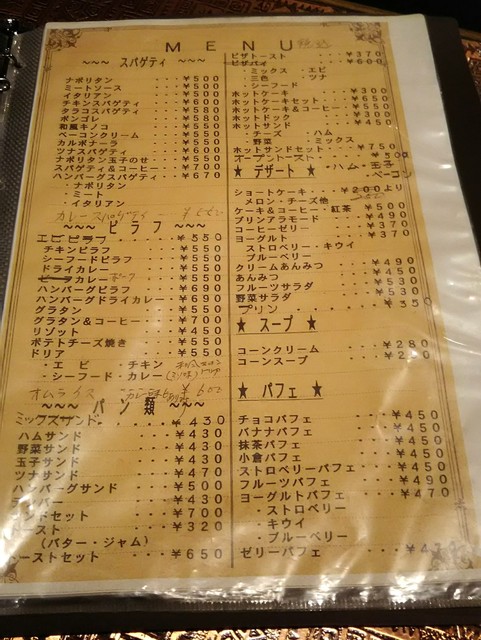 MENU
~~~ スパゲティ ~~~
ナポリタン ・・・・・¥500
ミートソース ・・・・¥500
イタリアン ・・・・・¥500
チキンスパゲティ ・・¥600
タラコスパゲティ ・・¥580
ボンゴレ ・・・・・・¥580
和風キノコ ・・・・・¥550
ベーコンクリーム ・・¥550
カルボナーラ ・・・・¥550
ツナスパゲティ ・・・¥600
ナポリタン玉子のせ ・・¥550
スパゲティ&コーヒー・・¥700
ハンバーグスパゲティ・・¥670
・ナポリタン
・ミート
・イタリアン
カレースパゲティ
~~~ ピラフ ~~~
エビピラフ ・・・・・¥550
チキンピラフ ・・・・¥550
シーフードピラフ ・・¥550
ドライカレー ・・・・¥550
カレー ・・・・¥550
ハンバーグピラフ ・・¥690
ハンバーグドライカレー・¥690
グラタン ・・・・・・¥550
グラタン&コーヒー・・¥700
リゾット ・・・・・・¥450
ポテトチーズ焼き ・・¥550
ドリア ・・・・・・・¥550
・エビ ・チキン
・シーフード・カレー
オムライス
~~~ パン類 ~~~
ミックスサンド・・・・¥430
ハムサンド ・・・・・¥430
野菜サンド ・・・・・¥430
玉子サンド ・・・・・¥430
ツナサンド ・・・・・¥470
ハンバーグサンド ・・¥500
・・・・¥430
ドセット ・・・・¥700
ースト ・・・・・¥320
(バター・ジャム)
ーストセット ・・・¥650
ピザトースト ・・・・¥370
ピザパイ ・・・・・・¥600
・ミックス ・エビ
・三色 ・ツナ
・シーフード
ホットケーキ ・・・・¥300
ホットケーキセット・・¥650
ホットケーキ&コーヒー・¥550
ホットドック ・・・・¥300
ホットサンド ・・・・¥450
・チーズ ・ハム
・野菜 ・ミックス
ホットサンドセット ・・¥750
オープントースト
・ハム・玉子
・ベーコン
★ デザート ★
ショートケーキ・・・・¥200より
メロン・チーズ他
ケーキ&コーヒー・紅茶 ¥500
プリンアラモード ・・¥490
コーヒーゼリー ・・・¥370
ヨーグルト ・・・・・¥370
ストロベリー・キウイ
ブルーベリー
クリームあんみつ ・・¥490
あんみつ ・・・・・・¥450
フルーツサラダ ・・・¥530
野菜サラダ ・・・・・¥530
プリン ・・・・・・・¥350
★ スープ ★
コーンクリーム ・・・¥280
コーンスープ ・・・・¥2
★ パフェ ★
チョコパフェ ・・・・¥450
バナナパフェ ・・・・¥450
抹茶パフェ ・・・・・¥450
小倉パフェ ・・・・・¥450
ストロベリーパフェ・・¥450
フルーツパフェ ・・・¥490
ヨーグルトパフェ ・・・¥470
・ストロベリー
・キウイ
・ブルーベリー
ゼリーパフェ ・・・・¥4